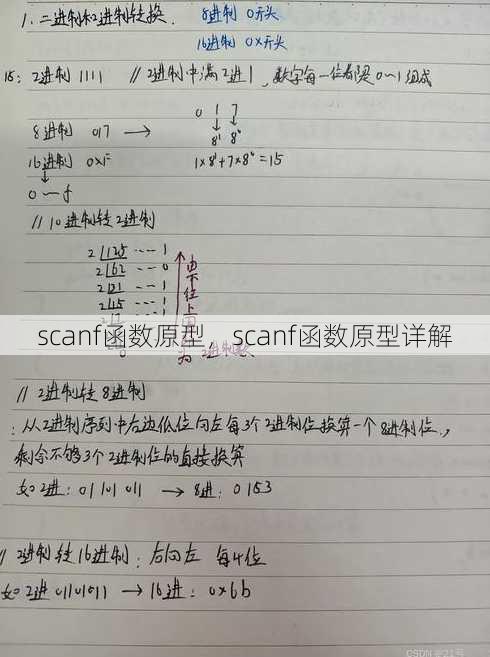 1. 二进制和2进制转换. 8进制 0开头
16进制 0x开头
15: 2进制 1111 // 2进制中满2进1, 数字每一位都是0~1组成
0 1 7
8进制 017 → ↓ ↓
8¹ 8⁰
16进制 0xF 1×8¹+7×8⁰=15
↓
0~f
// 10进制转2进制
2 125 --- 1
2 62 --- 0
2 31 --- 1
2 15 --- 1
由下往上
scanf函数原型,scanf函数原型详解
为 2进制数
// 2进制转8进制
: 从2进制序列中右边低位向左每3个2进制位换算一个8进制位.,
剩余不够3个2进制位的直接换算
如2进: 01 101 011 → 8进: 0153
// 2进制转16进制: 右向左 每4位
如2进 01101011 → 16进: 0x6b
CSDN @21号